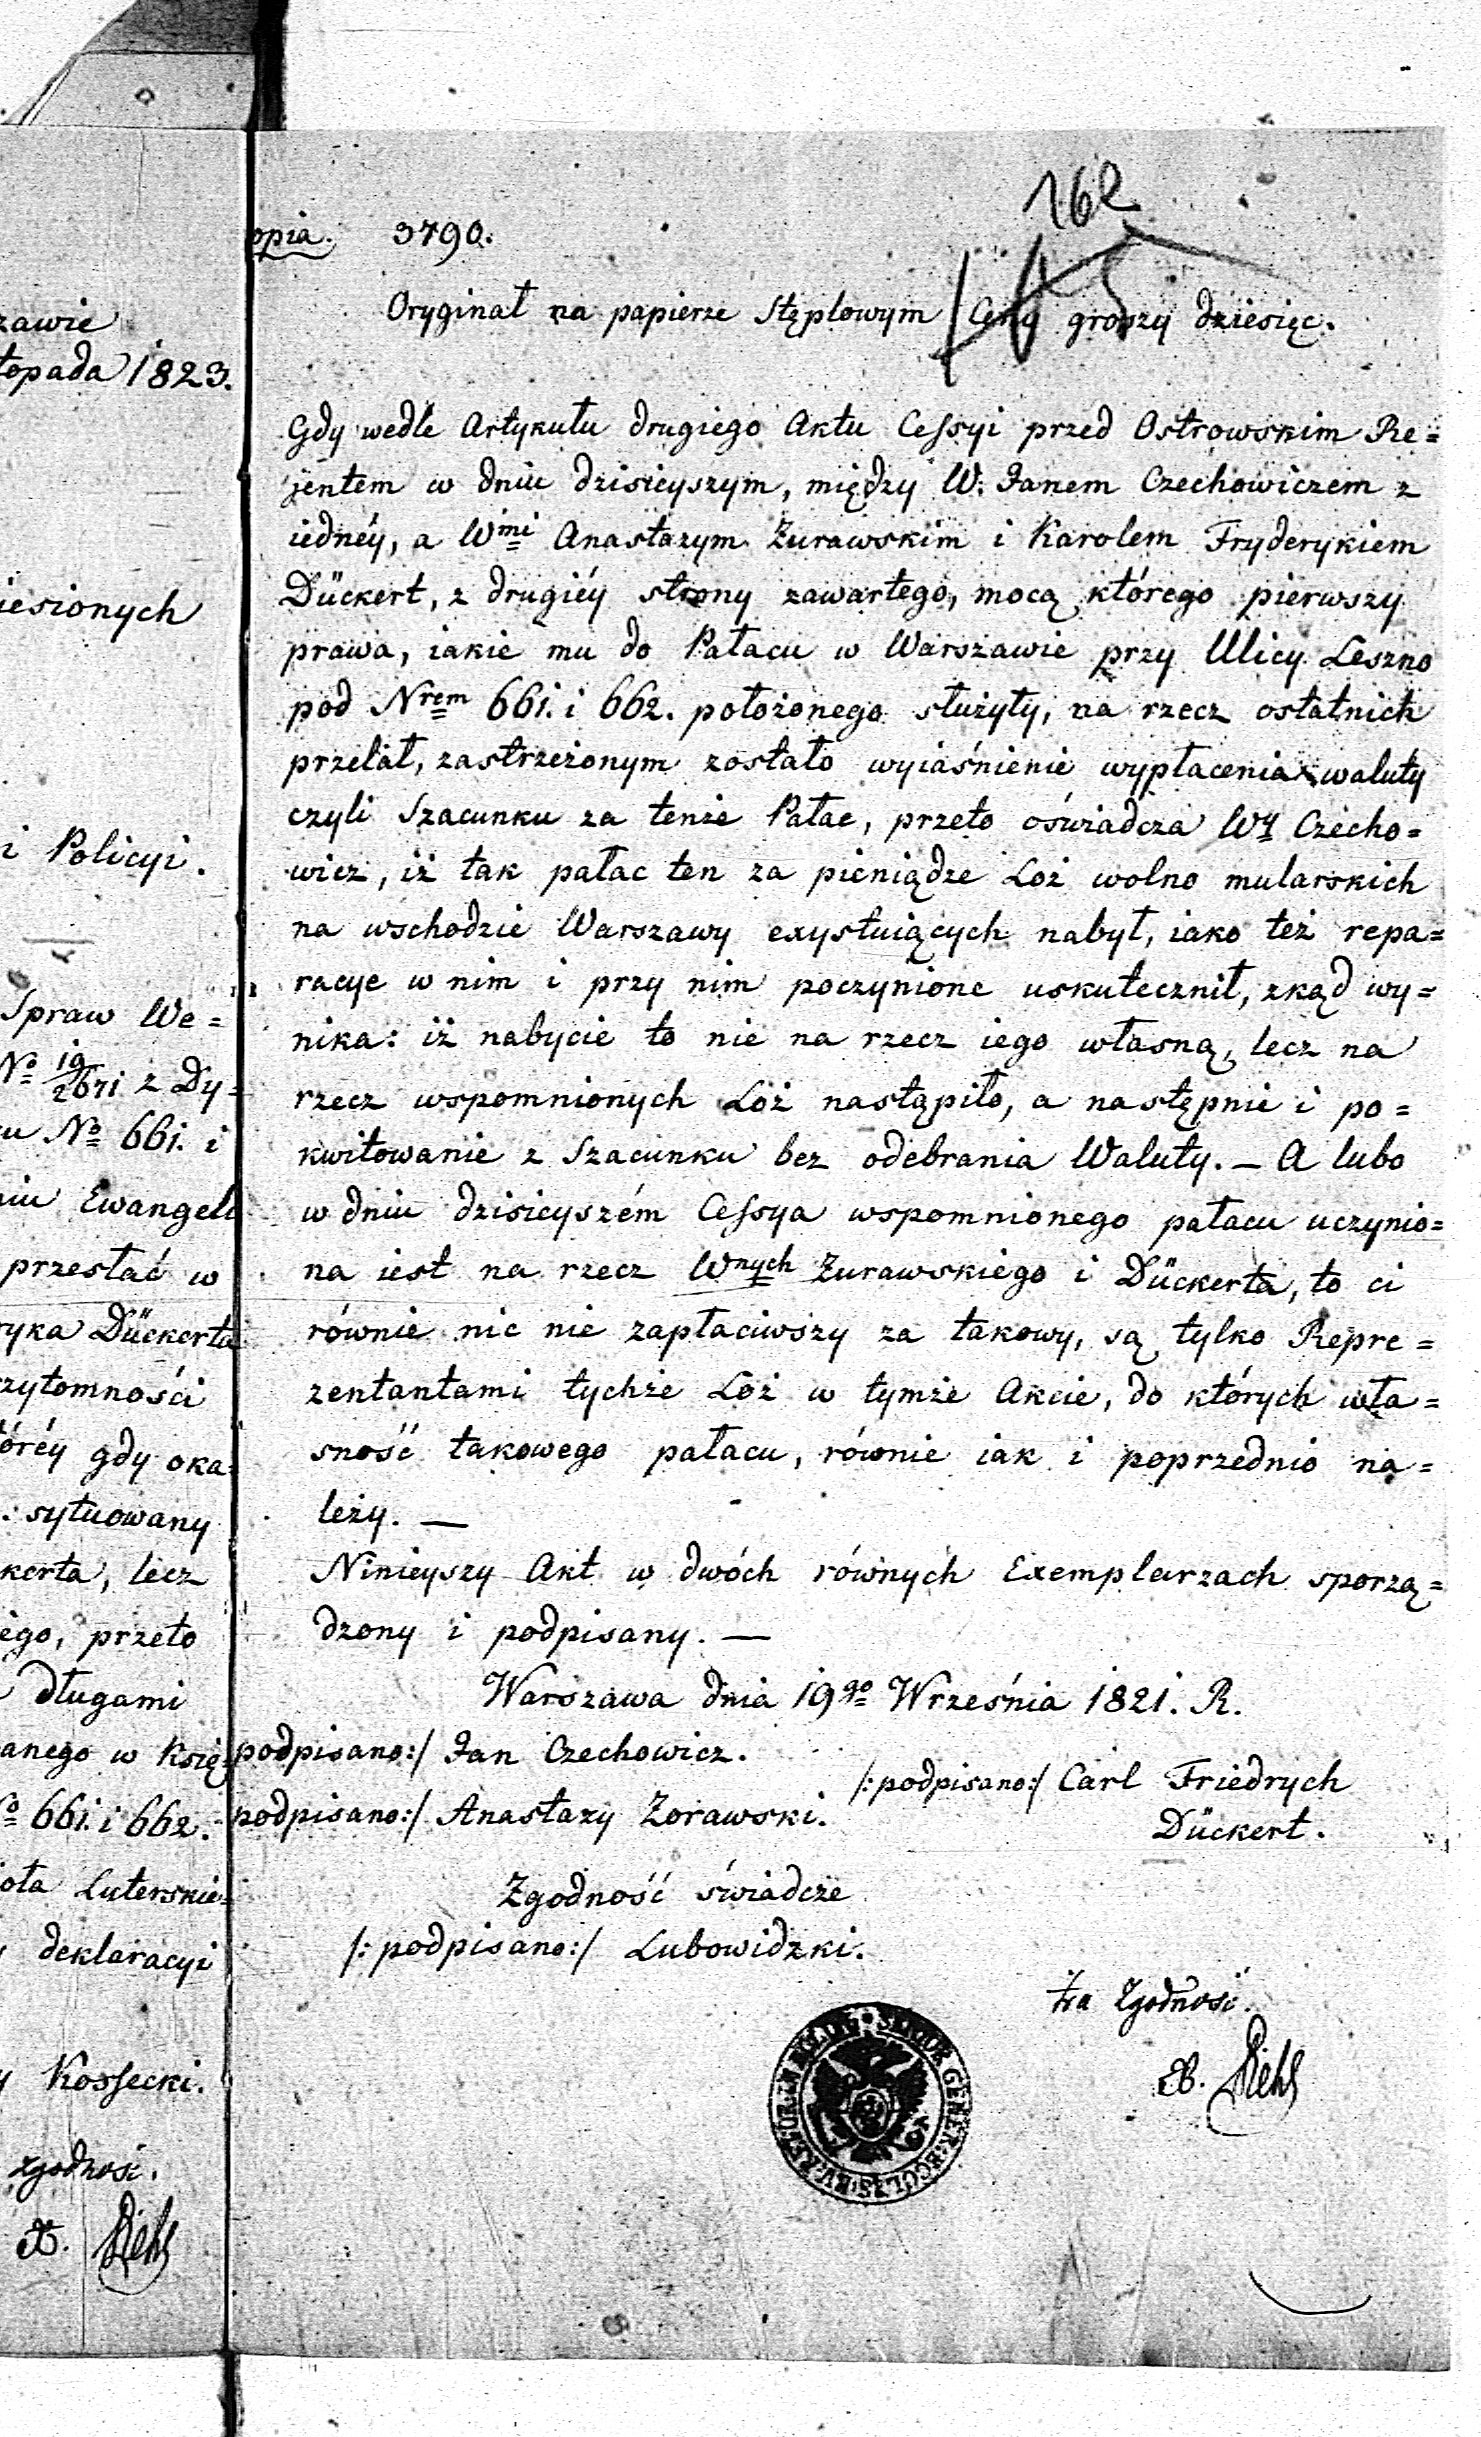 zawie
topada 1823.
iesionych
i Policyi.
Spraw We=
No 19/2671 z Dy=
u No 661. i
niu Ewangeli
przestać w
ryka Dückerta
zytomności
tóréy gdy oka=
: sytuowany
kerta, lecz
ego, przeto
długami
anego w Księ=
No 661. i 662.
ioła Luterskie=
deklaracyi
y Kossecki.
zgodność.
Diehl
opia. 3790.
162
145
Oryginał na papierze Stęplowym Ceny groszy dziesięc.
Gdy wedle Artykułu drugiego Aktu Cessyi przed Ostrowskim Re=
jentem w dniu dzisieyszym, między W. Janem Czechowiczem z
iednéy, a Wmi Anastazym Żurawskim i Karolem Fryderykiem
Dückert, z drugiéy strony zawartego, mocą którego pierwszy
prawa, iakie mu do Pałacu w Warszawie przy Ulicy Leszno
pod Nrem 661. i 662. położonego służyły, na rzecz ostatnich
przelał, zastrzeżonym zostało wyiáśnienie wypłacenia waluty
czyli Szacunku za tenże Pałac, przeto oświadcza Wy Czecho=
wicz, iż tak pałac ten za pieniądze Loż wolno mularskich
na wschodzie Warszawy exystuiących nabył, iako też repa=
racye w nim i przy nim poczynione uskutecznił, zkąd wy=
nika: iż nabycie to nie na rzecz iego własną, lecz na
rzecz wspomnionych Loż nastąpiło, a następnie i po=
kwitowanie z Szacunku bez odebrania Waluty. — A lubo
w dniu dzisieyszém Cessya wspomnionego pałacu uczynio=
na iest na rzecz Wnych Żurawskiego i Dückerta, to ci
równie nic nie zapłaciwszy za takowy, są tylko Repre=
zentantami tychże Loż w tymże Akcie, do których wła=
sność takowego pałacu, równie iak i poprzednio na=
leży. —
Ninieyszy Akt w dwóch równych Exemplarzach sporzą=
dzony i podpisany. —
Warszawa dnia 19go Września 1821. R.
podpisano:/ Jan Czechowicz.
/:podpisano:/ Carl Friedrych
podpisano:/ Anastazy Zorawski.
Dückert.
Zgodność świadcze
/:podpisano:/ Lubowidzki.
Za Zgodność.
Diehl
SENIOR GENER. ECCLES.